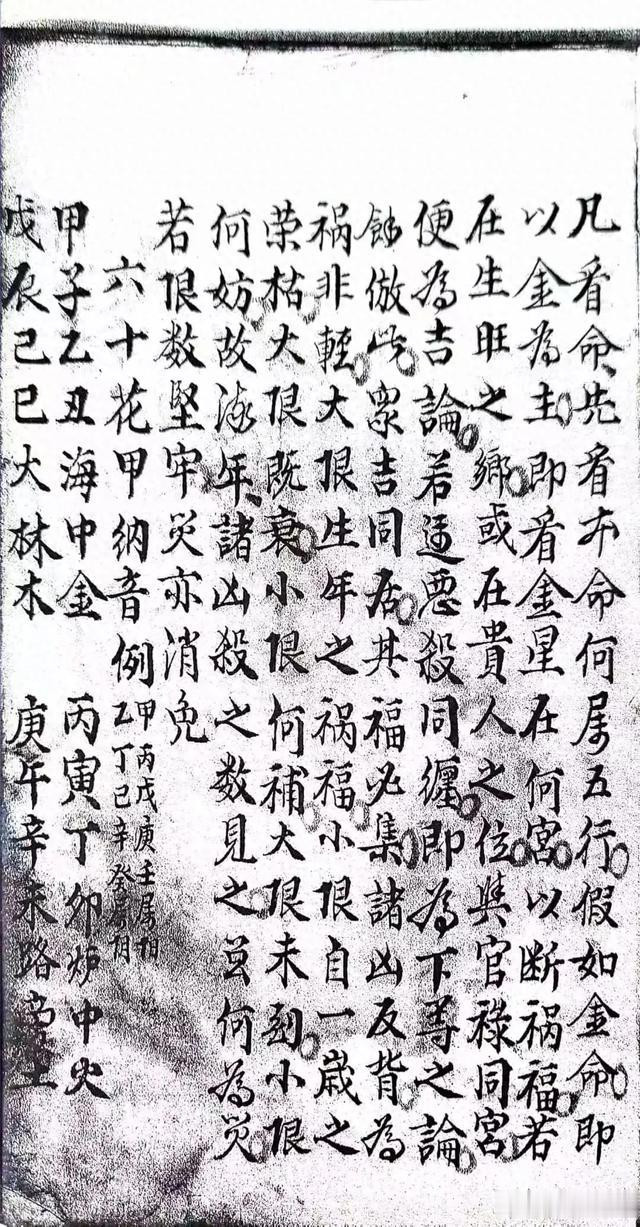 凡看命先看本命何属五行假如金命即
以金為主即看金星在何宫以断祸福若
在生旺之鄉或在貴人之位與官祿同宫
便為吉論若逢恶殺同纏即為下等之論
餘倣此衆吉同居其福必集諸凶反背為
祸非輕大限生年之祸福小限自一歲之
荣枯大限既衰小限何補大限未到小限
何妨故流年諸凶殺之数見之豈何為災
若限数堅牢災亦消免
六十花甲納音例 甲丙戊庚壬屬
乙丁己辛癸屬
甲子乙丑海中金 丙寅丁卯炉中火
戊辰己巳大林木 庚午辛未路旁土